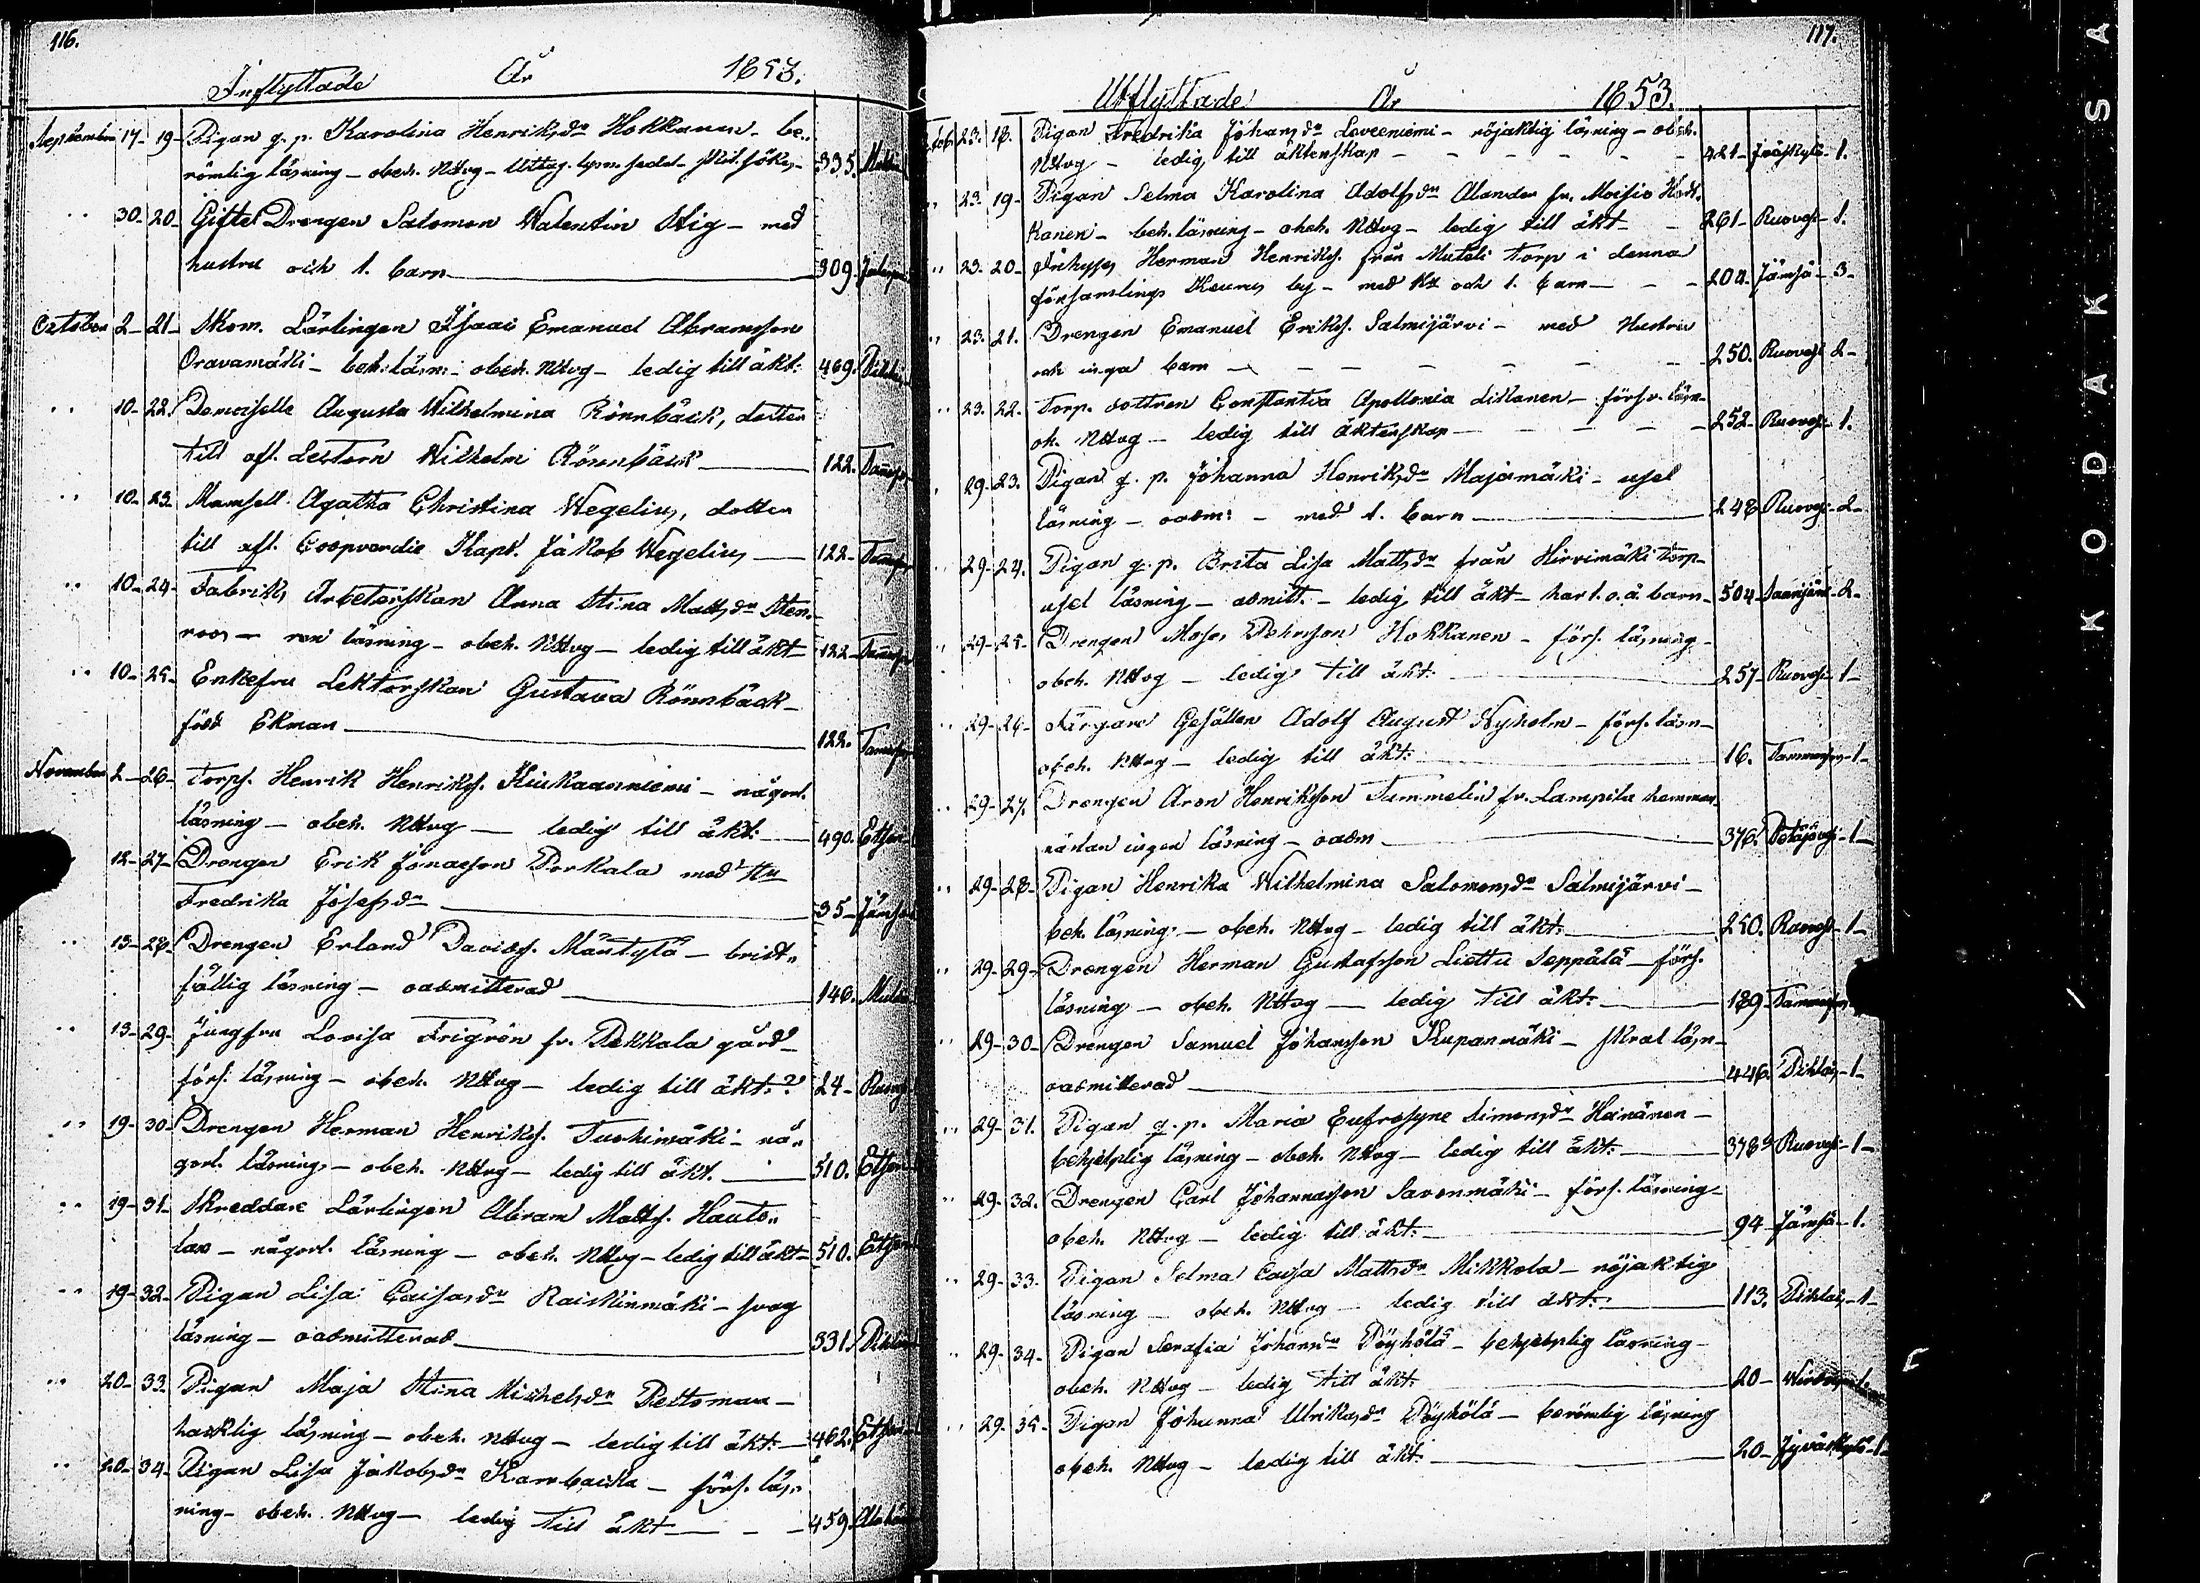 116.
Inflyttade År 1853.
September 17- 19- Pigan q. p. Karolina Henriksdr Hokkanen - be-
römlig läsning - obeh. Nttvg - 335.
30- 20- Gifte Drengen Salomon Walentin Stig - med
hustru och 1. barn 309.
October 2- 21- Skom. Lärlingen Isaac Emanuel Abramsson
Oravamäki - beh. läsn: - obeh. Nttvg - ledig till äkt: 469.
10- 22. Demoiselle Augusta Wilhelmina Rönnbäck, dotter
till afl. Lectorn Wilhelm Rönnbäck 122.
10- 23. Mamsell Agatha Christina Wegelius, dotter
till afl. Coopvardie Kapt. Jakob Wegelius 122-
10- 24- Fabriks Arbeterskan Anna Stina Mattsdr Sten-
roos - ren läsning - obeh. Nttvg - ledig till äkt 122-
10- 25- Enkefru Lektorskan Gustava Rönnbäck -
född Ekman 122.
November 2- 26- Torps. Henrik Henrikss. - någorl.
läsning - obeh. Nttvg - ledig till äkt: 490.
12- 27- Drengen Erik Jonasson Porkala med Hu
Fredrika Josefsdr 35-
13- 28- Drengen Erland Davidss. Mäntylä - brist-
fällig läsning - oadmitterad 146.
13- 29- Jungfru Lovisa Frigrén fr. Pekkala gård -
förs. läsning - obeh. Nttvg - ledig till äkt:? 24-
19- 30- Drengen Herman Henrikss. Tuohimäki - nå-
gorl. läsning - obeh. Nttvg - ledig till äkt. 510.
19- 31- Skreddare Lärlingen Abram Matts. Hauto-
- någorl. läsning - obeh. Nttvg - ledig till äkt - 510.
19- 32- Pigan Lisa Caisasdr Raiskinmäki - svag
läsning - oadmitterad 331.
20- 33- Pigan Maja Stina Michelsdr Peltomaa -
hacklig läsning - obeh. Nttvg - ledig till äkt: 462.
20- 34- Pigan Lisa Jakobsdr - förs. läs-
ning - obeh. Nttvg - ledig till äkt 459.
117.
Utflyttade År 1853.
23. 18. Pigan Fredrika Johansdr Loveeniemi - nöjaktig läsning - obeh.
Nttvg - ledig till äktenskap - 421- 1.
23. 19- Pigan Selma Karolina Adolfsdr Alander fr. Moisio Hok-
kanen - beh. läsning - obeh. Nttvg - ledig till äkt - 261- Ruovesi- 1.
23. 20- Inhyses Herman Henrikss. från Torp i denna
församlings Keurus by - med Hu och 1. barn - 204. Jämsä- 3-
23. 21. Drengen Emanuel Erikss. Salmijärvi - med Hustru
och inga barn - 250. Ruovesi 2-
23. 22. Torp. dottren Constantia Apollonia - försv. läsn-
ob. Nttvg - ledig till äktenskap - 252- Ruovesi- 1.
29- 23. Pigan q. p. Johanna Henriksdr Majamäki - usel
läsning - oadm: - med 1. barn 248 Ruovesi- 2-
29- 24. Pigan q. p. Brita Lisa Mattsdr från Hirvimäki Torp -
usel läsning - admitt. - ledig till äkt - har 1. o. ä. barn - 504- Saarijärvi- 2-
29- 25- Drengen Moses Hokkanen - förs. läsning -
obeh. Nttvg - ledig till äkt: 257- Ruovesi- 1-
29- 26- Färgare Gesällen Adolf August Nyholm - förs. läsn-
obeh. Nttvg - ledig till äkt: 16. 1-
29- 27. Drengen Aron Henriksson Tammelin fr. Lampila hemman
nästan ingen läsning - oadm 376. Petäjävesi- 1-
29- 28- Pigan Henrika Wilhelmina Salomonsdr Salmijärvi -
beh. läsning - obeh. Nttvg - ledig till äkt: 250. Ruovesi- 1-
29- 29- Drengen Herman Gustafsson Liettu Seppälä - förs.
läsning - obeh. Nttvg - ledig till äkt: 189
29- 30- Drengen Samuel Johansson Kupanmäki - skral läsn-
oadmitterad 446. Pihlaj- 1-
29- 31. Pigan q. p. Maria Eufrosyne Simonsdr Heinänen -
behjelplig läsning - obeh. Nttvg - ledig till äkt: 378 Ruovesi- 1-
29- 32. Drengen Carl Johannesson Savonmäki - förs. läsning -
obeh. Nttvg - ledig till äkt: 94- Jämsä- 1.
29- 33. Pigan Selma Caisa Mattsdr Mikkola - nöjaktig
läsning - obeh. Nttvg - ledig till äkt: 113. Pihlaj- 1-
29- 34- Pigan Serafia Johansdr Pöyhölä - behjelplig läsning -
obeh. Nttvg - ledig till äkt: 20-
29- 35- Pigan Johanna Ulriksdr Pöyhölä - berömlig läsning
obeh. Nttvg - ledig till äkt: 20- Jyväskylä- 1-
KODAK SA